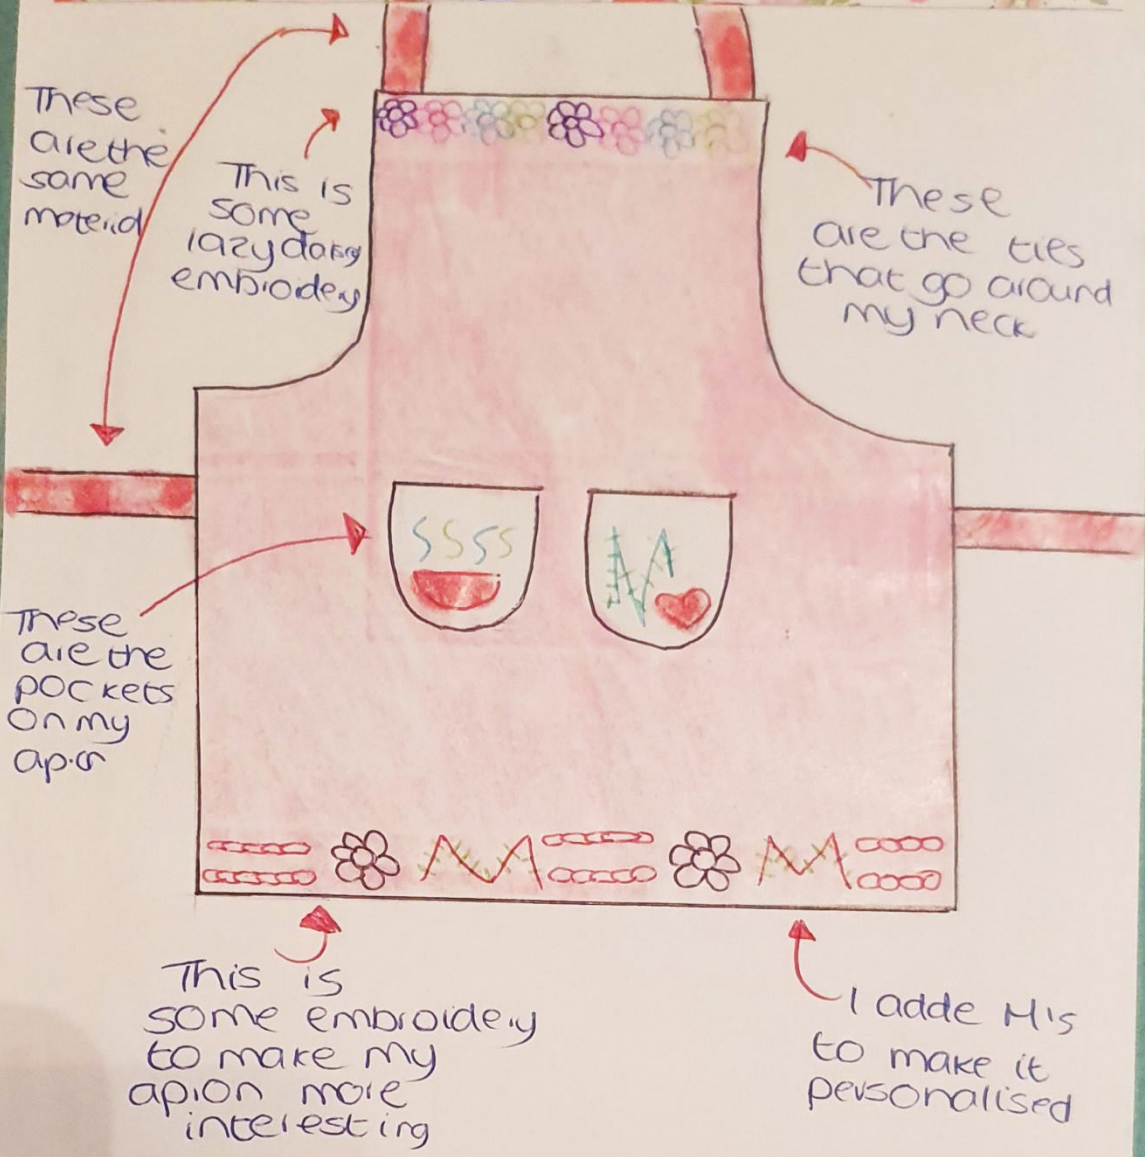 These
are the
same
material
This is
some
lazy daisy
embroidery
These
are the ties
that go around
my neck
These
are the
pockets
on my
apron
This is
some embroidery
to make my
apron more
interesting
I adde M's
to make it
personalised